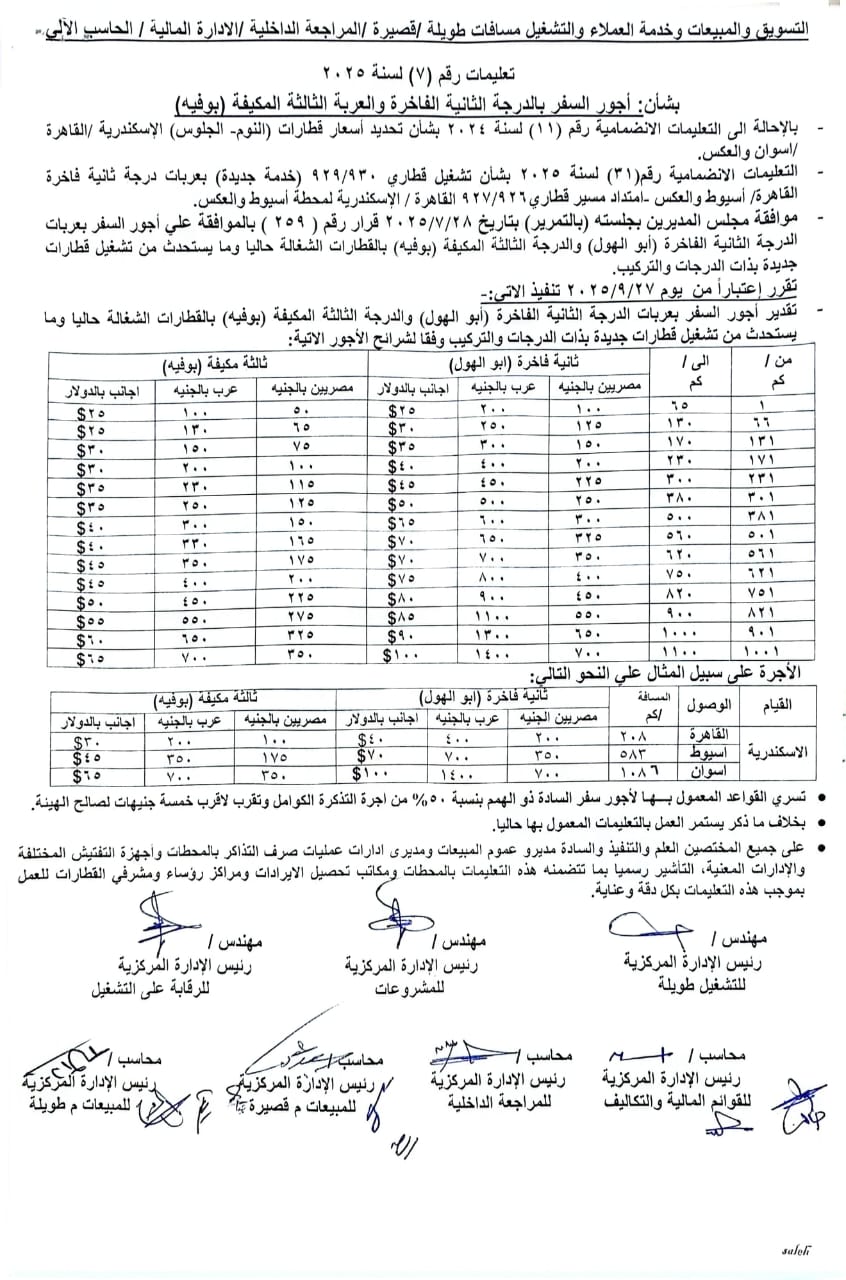 التسويق والمبيعات وخدمة العملاء والتشغيل مسافات طويلة /قصيرة /المراجعة الداخلية /الادارة المالية / الحاسب الآلي-
تعليمات رقم (٧) لسنة ٢٠٢٥
بشأن: أجور السفر بالدرجة الثانية الفاخرة والعربة الثالثة المكيفة (بوفيه)
- بالإحالة الى التعليمات الانضمامية رقم (١١) لسنة ٢٠٢٤ بشأن تحديد أسعار قطارات (النوم- الجلوس) الإسكندرية /القاهرة
/اسوان والعكس.
- التعليمات الانضمامية رقم(٣١) لسنة ٢٠٢٥ بشأن تشغيل قطاري ٩٢٩/٩٣٠ (خدمة جديدة) بعربات درجة ثانية فاخرة
القاهرة/ أسيوط والعكس -امتداد مسير قطاري ٩٢٧/٩٢٦ القاهرة / الإسكندرية لمحطة أسيوط والعكس.
- موافقة مجلس المديرين بجلسته (بالتمرير) بتاريخ ٢٠٢٥/٧/٢٨ قرار رقم ( ٢٥٩ ) بالموافقة علي أجور السفر بعربات
الدرجة الثانية الفاخرة (أبو الهول) والدرجة الثالثة المكيفة (بوفيه) بالقطارات الشغالة حاليا وما يستحدث من تشغيل قطارات
جديدة بذات الدرجات والتركيب.
تقرر إعتباراً من يوم ٢٠٢٥/٩/٢٧ تنفيذ الاتي:-
- تقدير أجور السفر بعربات الدرجة الثانية الفاخرة (أبو الهول) والدرجة الثالثة المكيفة (بوفيه) بالقطارات الشغالة حاليا وما
يستحدث من تشغيل قطارات جديدة بذات الدرجات والتركيب وفقا لشرائح الأجور الاتية:
من / كم الى / كم ثانية فاخرة (ابو الهول) ثالثة مكيفة (بوفيه)
مصريين بالجنيه عرب بالجنيه اجانب بالدولار مصريين بالجنيه عرب بالجنيه اجانب بالدولار
١ ٦٥ ١٠٠ ٢٠٠ ٢٥$ ٥٠ ١٠٠ ٢٥$
٦٦ ١٣٠ ١٢٥ ٢٥٠ ٣٠$ ٦٥ ١٣٠ ٢٥$
١٣١ ١٧٠ ١٥٠ ٣٠٠ ٣٥$ ٧٥ ١٥٠ ٣٠$
١٧١ ٢٣٠ ٢٠٠ ٤٠٠ ٤٠$ ١٠٠ ٢٠٠ ٣٠$
٢٣١ ٣٠٠ ٢٢٥ ٤٥٠ ٤٥$ ١١٥ ٢٣٠ ٣٥$
٣٠١ ٣٨٠ ٢٥٠ ٥٠٠ ٥٠$ ١٢٥ ٢٥٠ ٣٥$
٣٨١ ٥٠٠ ٣٠٠ ٦٠٠ ٦٥$ ١٥٠ ٣٠٠ ٤٠$
٥٠١ ٥٦٠ ٣٢٥ ٦٥٠ ٧٠$ ١٦٥ ٣٣٠ ٤٠$
٥٦١ ٦٢٠ ٣٥٠ ٧٠٠ ٧٠$ ١٧٥ ٣٥٠ ٤٥$
٦٢١ ٧٥٠ ٤٠٠ ٨٠٠ ٧٥$ ٢٠٠ ٤٠٠ ٤٥$
٧٥١ ٨٢٠ ٤٥٠ ٩٠٠ ٨٠$ ٢٢٥ ٤٥٠ ٥٠$
٨٢١ ٩٠٠ ٥٥٠ ١١٠٠ ٨٥$ ٢٧٥ ٥٥٠ ٥٥$
٩٠١ ١٠٠٠ ٦٥٠ ١٣٠٠ ٩٠$ ٣٢٥ ٦٥٠ ٦٠$
١٠٠١ ١١٠٠ ٧٠٠ ١٤٠٠ ١٠٠$ ٣٥٠ ٧٠٠ ٦٥$
الأجرة على سبيل المثال علي النحو التالي:
القيام الوصول المسافة /كم ثانية فاخرة (ابو الهول) ثالثة مكيفة (بوفيه)
مصريين الجنيه عرب بالجنيه اجانب بالدولار مصريين بالجنيه عرب بالجنيه اجانب بالدولار
الاسكندرية القاهرة ٢٠٨ ٢٠٠ ٤٠٠ ٤٠$ ١٠٠ ٢٠٠ ٣٠$
اسيوط ٥٨٣ ٣٥٠ ٧٠٠ ٧٠$ ١٧٥ ٣٥٠ ٤٥$
اسوان ١٠٨٦ ٧٠٠ ١٤٠٠ ١٠٠$ ٣٥٠ ٧٠٠ ٦٥$
• تسري القواعد المعمول بـــها لأجور سفر السادة ذو الهمم بنسبة ٥٠% من اجرة التذكرة الكوامل وتقرب لاقرب خمسة جنيهات لصالح الهيئة.
• بخلاف ما ذكر يستمر العمل بالتعليمات المعمول بها حاليا.
• على جميع المختصين العلم والتنفيذ والسادة مديرو عموم المبيعات ومديرى ادارات عمليات صرف التذاكر بالمحطات وأجهزة التفتيش المختلفة
والإدارات المعنية، التأشير رسميا بما تتضمنه هذه التعليمات بالمحطات ومكاتب تحصيل الايرادات ومراكز رؤساء ومشرفي القطارات للعمل
بموجب هذه التعليمات بكل دقة وعناية.
مهندس / مهندس / مهندس /
رئيس الإدارة المركزية رئيس الإدارة المركزية رئيس الإدارة المركزية
للتشغيل طويلة للمشروعات للرقابة على التشغيل
محاسب / محاسب / محاسب / محاسب /
رئيس الإدارة المركزية رئيس الإدارة المركزية رئيس الإدارة المركزية رئيس الإدارة المركزية
للقوائم المالية والتكاليف للمراجعة الداخلية للمبيعات م قصيرة للمبيعات م طويلة
saleh